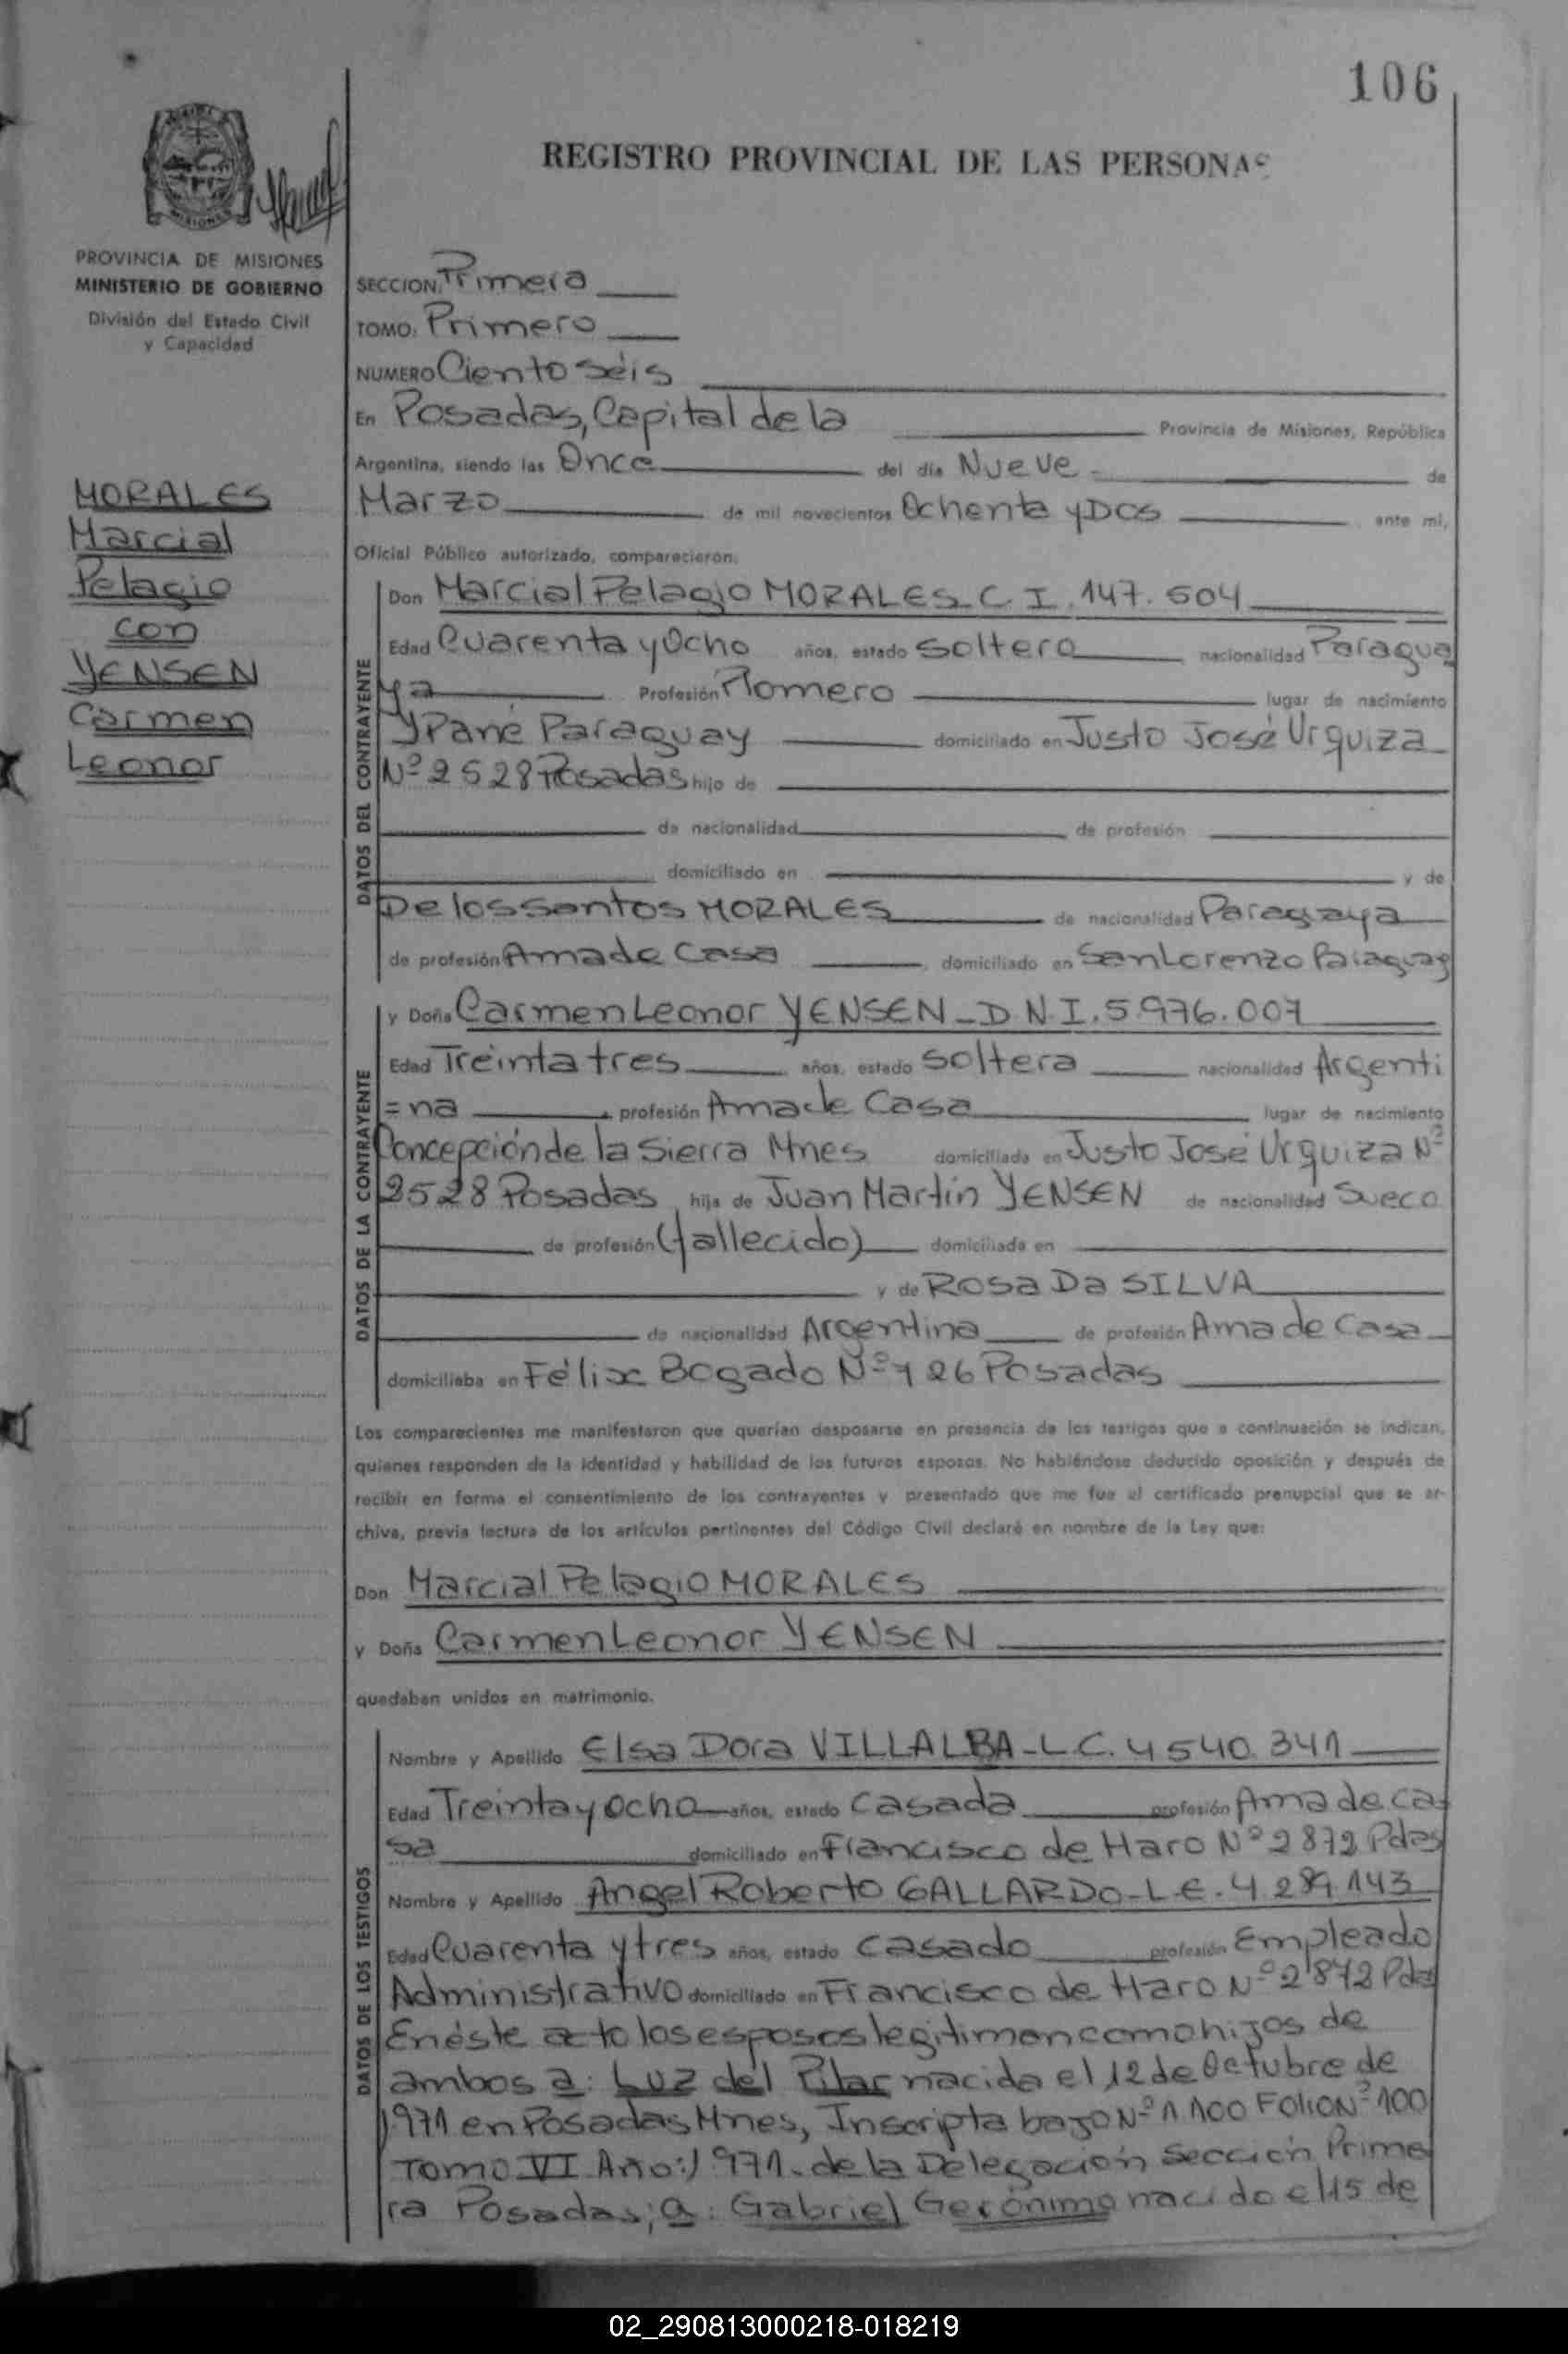 106
REGISTRO PROVINCIAL DE LAS PERSONAS
MISIONES
PROVINCIA DE MISIONES
MINISTERIO DE GOBIERNO
División del Estado Civil
y Capacidad
SECCION: Primera
TOMO: Primero
NUMERO Ciento séis
En Posadas, Capital de la Provincia de Misiones, República
Argentina, siendo las Once del día Nueve de
Marzo de mil novecientos Ochenta y Dos ante mi,
Oficial Público autorizado, comparecieron:
MORALES
Marcial
Pelagio
con
YENSEN
Carmen
Leonor
DATOS DEL CONTRAYENTE
Don Marcial Pelagio MORALES_C.I.147.504
Edad Cuarenta y Ocho años, estado Soltero nacionalidad Paragua
ya Profesión Plomero lugar de nacimiento
Ypané Paraguay domiciliado en Justo José Urquiza
Nº 2528 Posadas hijo de
de nacionalidad de profesión
domiciliado en y de
De los Santos MORALES de nacionalidad Paragaya
de profesión Ama de Casa domiciliado en San Lorenzo Paraguay
DATOS DE LA CONTRAYENTE
y Doña Carmen Leonor YENSEN_D.N.I.5.976.007
Edad Treinta tres años, estado Soltera nacionalidad Argenti
=na profesión Ama de Casa lugar de nacimiento
Concepción de la Sierra Mnes domiciliada en Justo José Urquiza Nº
2528 Posadas hija de Juan Martín YENSEN de nacionalidad Sueco
de profesión (fallecido) domiciliado en
y de ROSA Da SILVA
de nacionalidad Argentina de profesión Ama de Casa
domiciliaba en Félix Bogado Nº 726 Posadas
Los comparecientes me manifestaron que querían desposarse en presencia de los testigos que a continuación se indican,
quienes responden de la identidad y habilidad de los futuros esposos. No habiéndose deducido oposición y después de
recibir en forma el consentimiento de los contrayentes y presentado que me fue el certificado prenupcial que se ar-
chiva, previa lectura de los artículos pertinentes del Código Civil declaré en nombre de la Ley que:
Don Marcial Pelagio MORALES
y Doña Carmen Leonor YENSEN
quedaban unidos en matrimonio.
DATOS DE LOS TESTIGOS
Nombre y Apellido Elsa Dora VILLALBA-L.C.4540.341
Edad Treinta y ocho años, estado Casada profesión Ama de Ca-
sa domiciliado en Francisco de Haro Nº 2872 Pdas
Nombre y Apellido Angel Roberto GALLARDO-L.E.4.289.143
Edad Cuarenta y tres años, estado Casado profesión Empleado
Administrativo domiciliado en Francisco de Haro Nº 2872 Pdas
En éste acto los esposos legitiman como hijos de
ambos a: Luz del Pilar nacida el 12 de Octubre de
1971 en Posadas Mnes, Inscripta bajo Nº 1100 Folio Nº 100
Tomo VI Año:1971. de la Delegación Sección Prime
ra Posadas; a: Gabriel Gerónimo nacido el 15 de
02_290813000218-018219